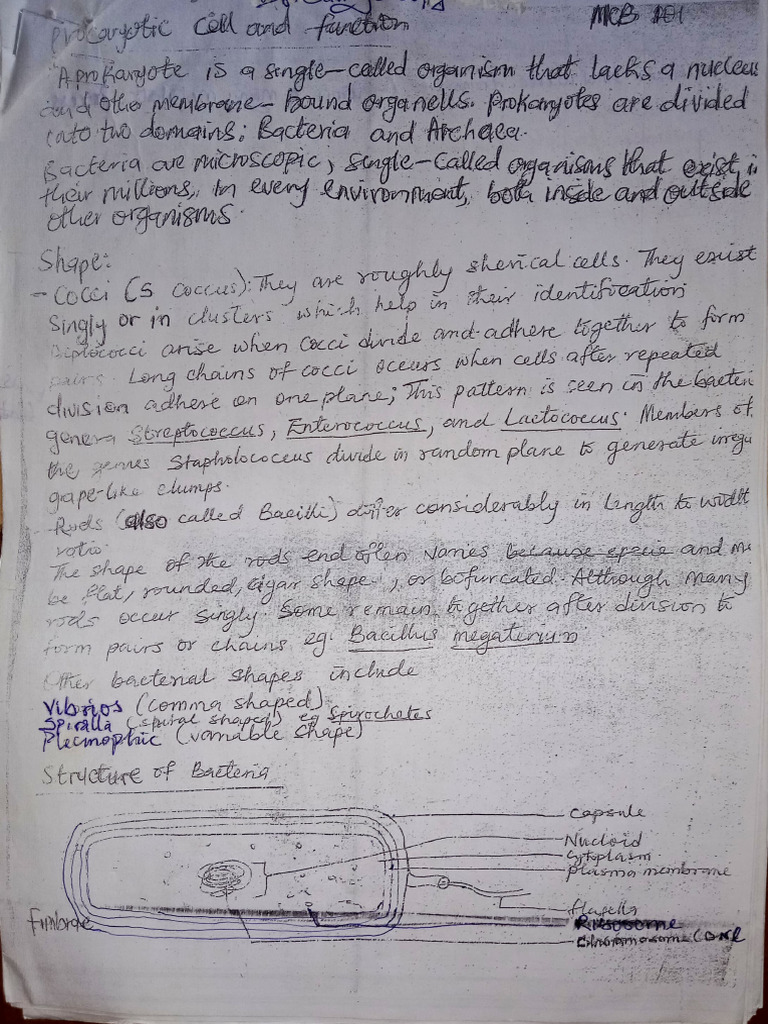 MCB 101
Procaryotic Cell and function
A prokaryote is a single-called organism that lacks a nucleus
and other membrane-bound organells. Prokaryotes are divided
into two domains: Bacteria and Archaea.
Bacteria are microscopic, single-called organisms that exist in
their millions, in every environment, both inside and outside
other organisms.
Shape:
- Cocci (S coccus): They are roughly sherical cells. They exist
Singly or in clusters which help in their identification
Diplococci arise when Cocci divide and adhere together to form
pairs. Long chains of cocci occurs when cells after repeated
division adhere on one plane; This pattern is seen in the bacteri
genera Streptococcus, Enterococcus, and Lactococcus. Members of
the genus Stapholococcus divide in random plane to generate irregu
grape-like clumps.
- Rods (also called Bacilli) differ considerably in length to width
ratio
The shape of the rods end often varies because specie and ma
be flat, rounded, cigar shape, or bofurcated. Although many
rods occur singly. Some remain together after division to
form pairs or chains eg. Bacillus megaterium
Other bacterial shapes include
Vibrios (comma shaped)
Spiralla (spiral shaped) eg Spirochetes
Plecmophic (variable shape)
Structure of Bacteria
Capsule
Nucloid
Cytoplasm
Plasma membrane
flagella
Fimbrae
Ribosome
Chromosome (DNA